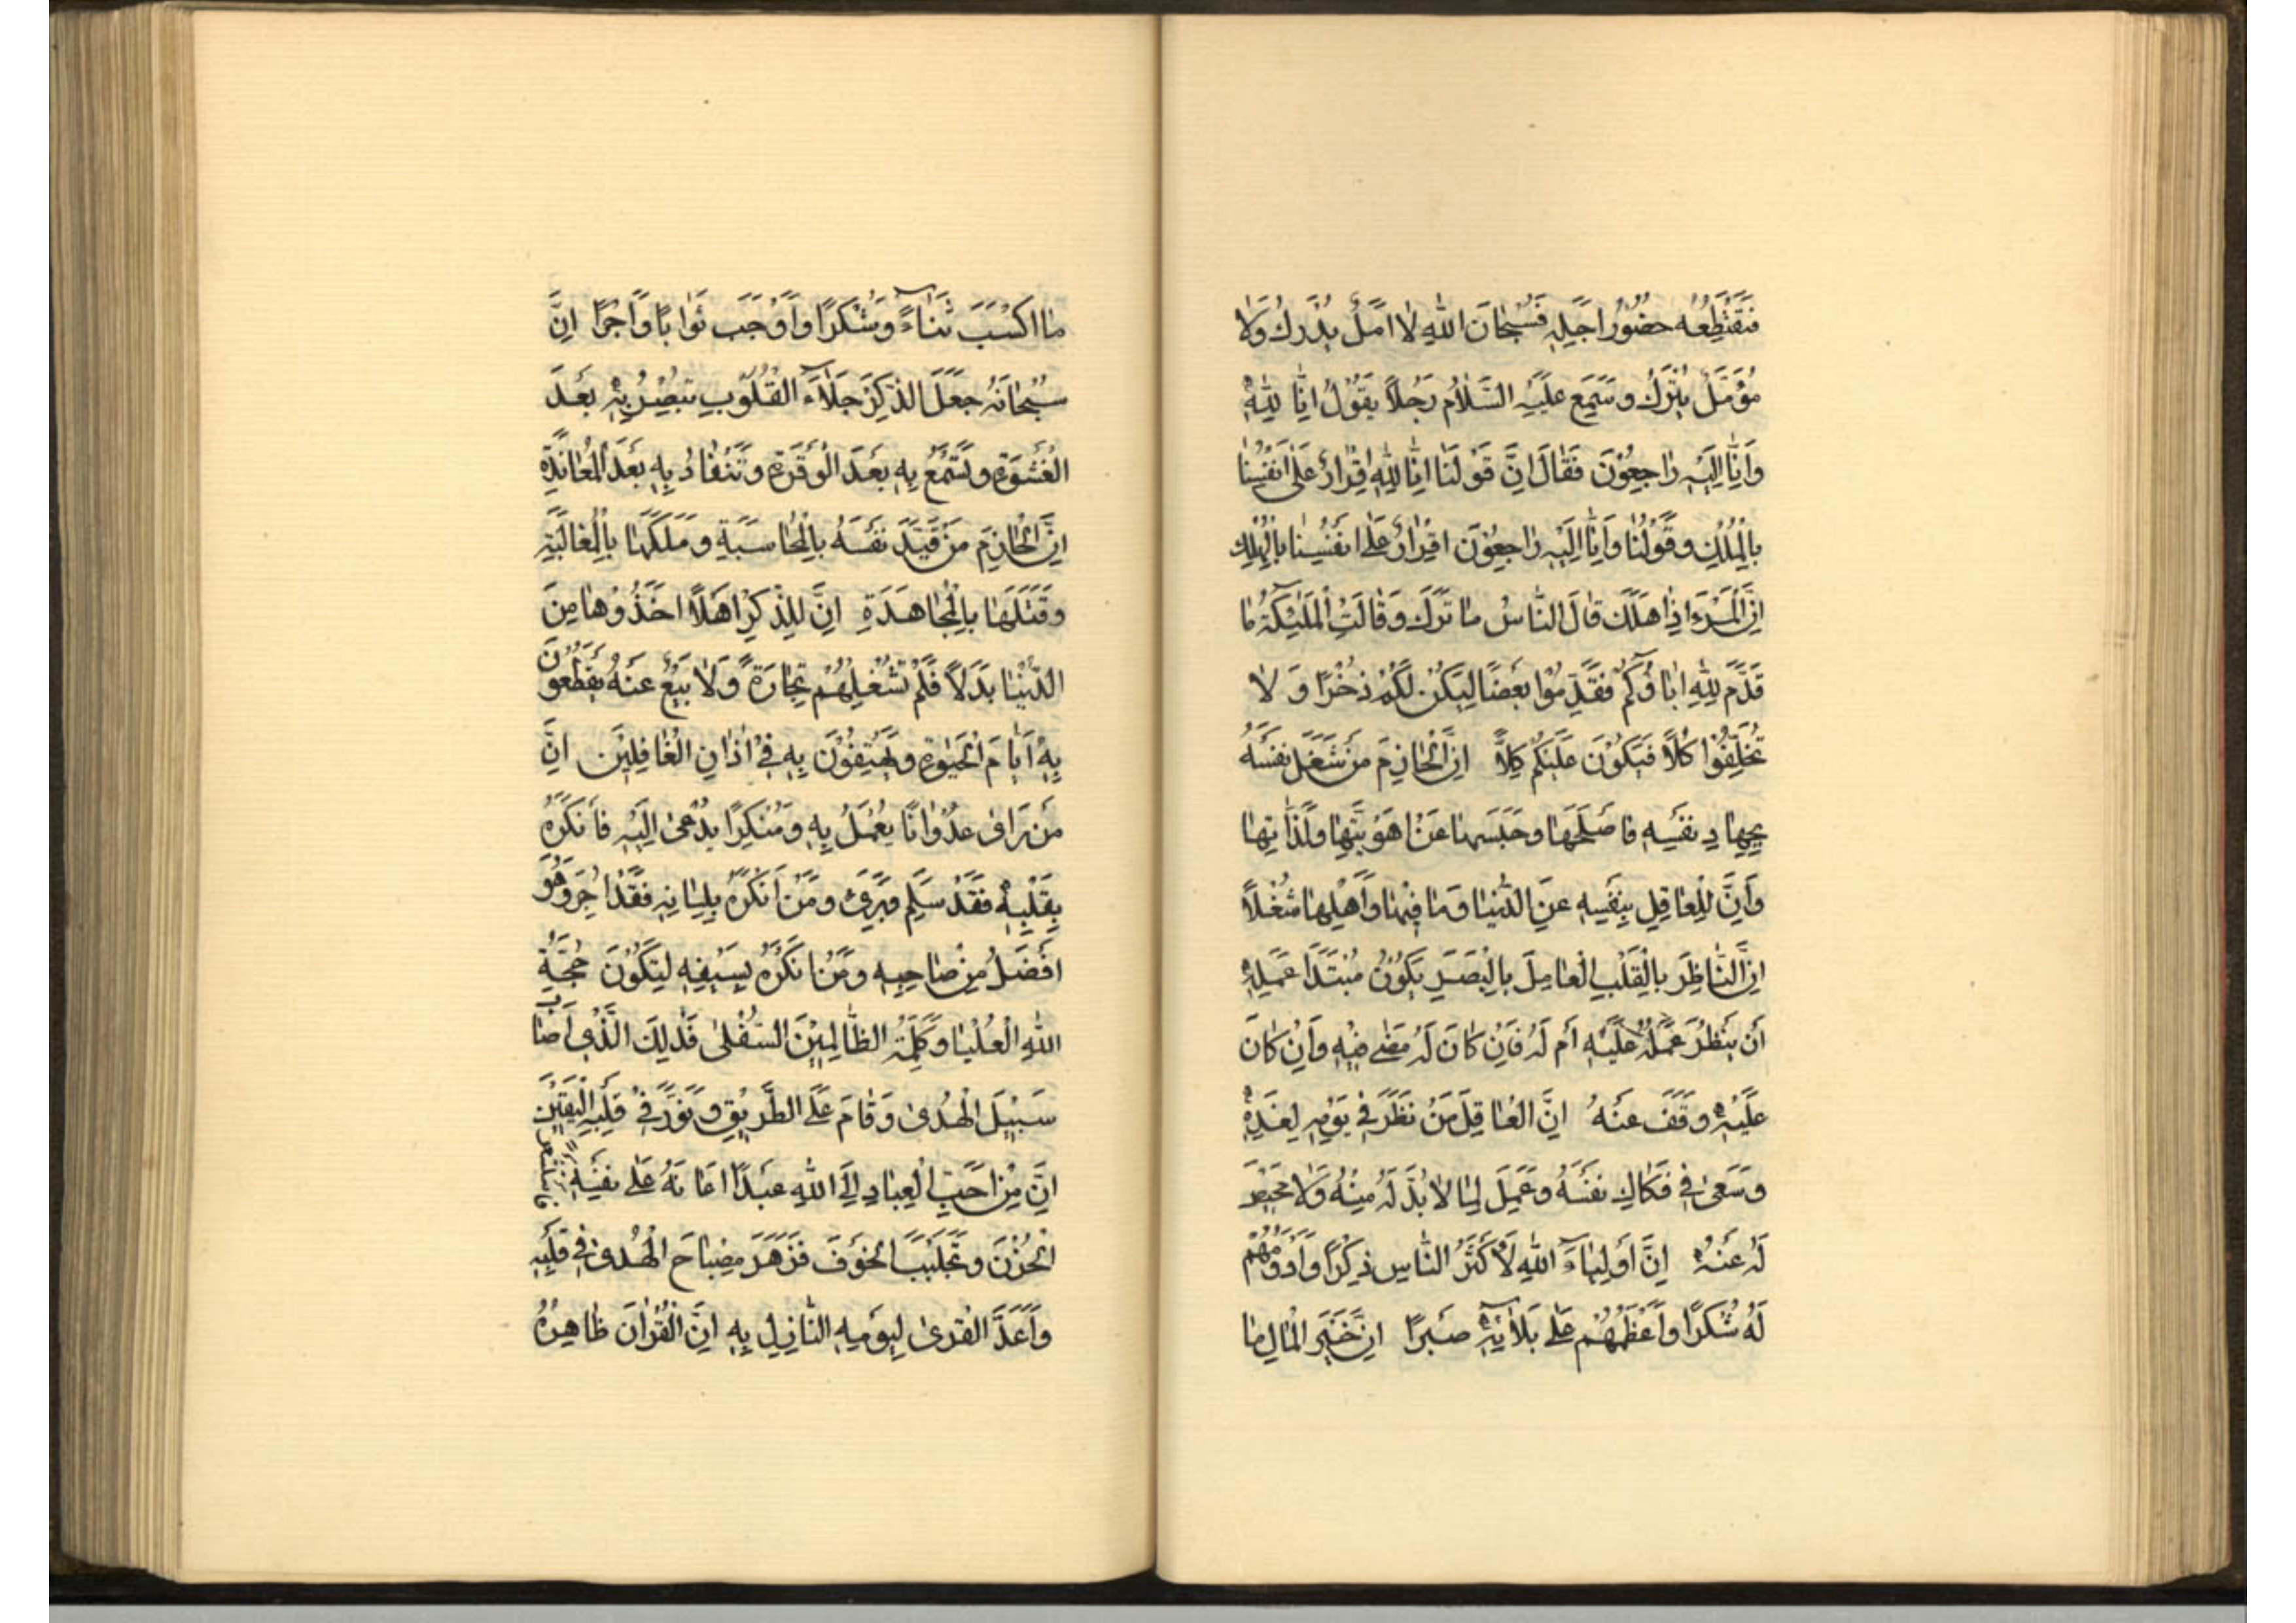 فَيَقْتَطِعُهُ حُضُورُ اَجَلِهِ فَسُبْحَانَ اللهِ لَا اَمَلٌ يُدْرَكُ وَلَا
مُؤَمَّلٌ يُتْرَكُ وَسَمِعَ عَلَيْهِ السَّلَامُ رَجُلًا يَقُولُ اِنَّا لِلهِ
وَاِنَّا اِلَيْهِ رَاجِعُونَ فَقَالَ اِنَّ قَوْلَنَا اِنَّا لِلهِ اِقْرَارٌ عَلَى اَنْفُسِنَا
بِالْمُلْكِ وَقَوْلُنَا وَاِنَّا اِلَيْهِ رَاجِعُونَ اِقْرَارٌ عَلَى اَنْفُسِنَا بِالْهُلْكِ
اِنَّ الْمَرْءَ اِذَا هَلَكَ قَالَ النَّاسُ مَا تَرَكَ وَقَالَتِ الْمَلٰئِكَةُ مَا
قَدَّمَ لِلهِ اٰبَاؤُكُمْ فَقَدِّمُوا بَعْضًا لِيَكُنْ لَكُمْ ذُخْرًا وَلَا
تُخَلِّفُوا كُلًّا فَيَكُونَ عَلَيْكُمْ كَلًّا اِنَّ الْحَازِمَ مَنْ شَغَلَ نَفْسَهُ
بِجِهَادِ نَفْسِهِ فَاَصْلَحَهَا وَحَبَسَهَا عَنْ اَهْوِيَتِهَا وَلَذَّاتِهَا
وَاِنَّ لِلْعَاقِلِ بِنَفْسِهِ عَنِ الدُّنْيَا وَمَا فِيهَا وَاَهْلِهَا شُغْلًا
اِنَّ النَّاظِرَ بِالْقَلْبِ الْعَامِلَ بِالْبَصَرِ يَكُونُ مُبْتَدَا عَمَلِهِ
اَنْ يَنْظُرَ عَمَلُهُ عَلَيْهِ اَمْ لَهُ فَاِنْ كَانَ لَهُ مَضٰى فِيهِ وَاِنْ كَانَ
عَلَيْهِ وَقَفَ عَنْهُ اِنَّ الْعَاقِلَ مَنْ نَظَرَ فِي يَوْمِهِ لِغَدِهِ
وَسَعٰى فِي فَكَاكِ نَفْسِهِ وَعَمِلَ لِمَا لَا بُدَّ لَهُ مِنْهُ وَلَا مَحِيصَ
لَهُ عَنْهُ اِنَّ اَوْلِيَاءَ اللهِ لَاَكْثَرُ النَّاسِ ذِكْرًا وَاَدْوَمُهُمْ
لَهُ شُكْرًا وَاَعْظَمُهُمْ عَلَى بَلَائِهِ صَبْرًا اِنَّ خَيْرَ الْمَالِ مَا
مَا اكْسَبَ ثَنَاءً وَشُكْرًا وَاَوْجَبَ ثَوَابًا وَاَجْرًا اِنَّ
سُبْحَانَهُ جَعَلَ الذِّكْرَ جَلَاءَ الْقُلُوبِ تُبْصِرُ بِهِ بَعْدَ
الْغَشْوَةِ وَتَسْمَعُ بِهِ بَعْدَ الْوَقْرَةِ وَتَنْقَادُ بِهِ بَعْدَ الْمُعَانَدَةِ
اِنَّ الْحَازِمَ مَنْ قَيَّدَ نَفْسَهُ بِالْمُحَاسَبَةِ وَمَلَكَهَا بِالْمُغَالَبَةِ
وَقَتَلَهَا بِالْمُجَاهَدَةِ اِنَّ لِلذِّكْرِ اَهْلًا اَخَذُوهَا مِنَ
الدُّنْيَا بَدَلًا فَلَمْ تَشْغَلْهُمْ تِجَارَةٌ وَلَا بَيْعٌ عَنْهُ يَقْطَعُونَ
بِهِ اَيَّامَ الْحَيٰوةِ وَيَهْتِفُونَ بِهِ فِي اٰذَانِ الْغَافِلِينَ اِنَّ
مَنْ رَاٰى عُدْوَانًا يُعْمَلُ بِهِ وَمُنْكَرًا يُدْعٰى اِلَيْهِ فَاَنْكَرَهُ
بِقَلْبِهِ فَقَدْ سَلِمَ وَبَرِئَ وَمَنْ اَنْكَرَهُ بِلِسَانِهِ فَقَدْ اُجِرَ وَهُوَ
اَفْضَلُ مِنْ صَاحِبِهِ وَمَنْ اَنْكَرَهُ بِسَيْفِهِ لِتَكُونَ حُجَّةُ
اللهِ الْعُلْيَا وَكَلِمَةُ الظَّالِمِينَ السُّفْلٰى فَذٰلِكَ الَّذِي اَصَابَ
سَبِيلَ الْهُدٰى وَقَامَ عَلَى الطَّرِيقِ وَنَوَّرَ فِي قَلْبِهِ الْيَقِينَ
اِنَّ مِنْ اَحَبِّ الْعِبَادِ اِلَى اللهِ عَبْدًا اَعَانَهُ عَلَى نَفْسِهِ
الْحُزْنَ وَتَجَلْبَبَ الْخَوْفَ فَزَهَرَ مِصْبَاحُ الْهُدٰى فِي قَلْبِهِ
وَاَعَدَّ الْقِرٰى لِيَوْمِهِ النَّازِلِ بِهِ اِنَّ الْقُرْاٰنَ ظَاهِرُهُ